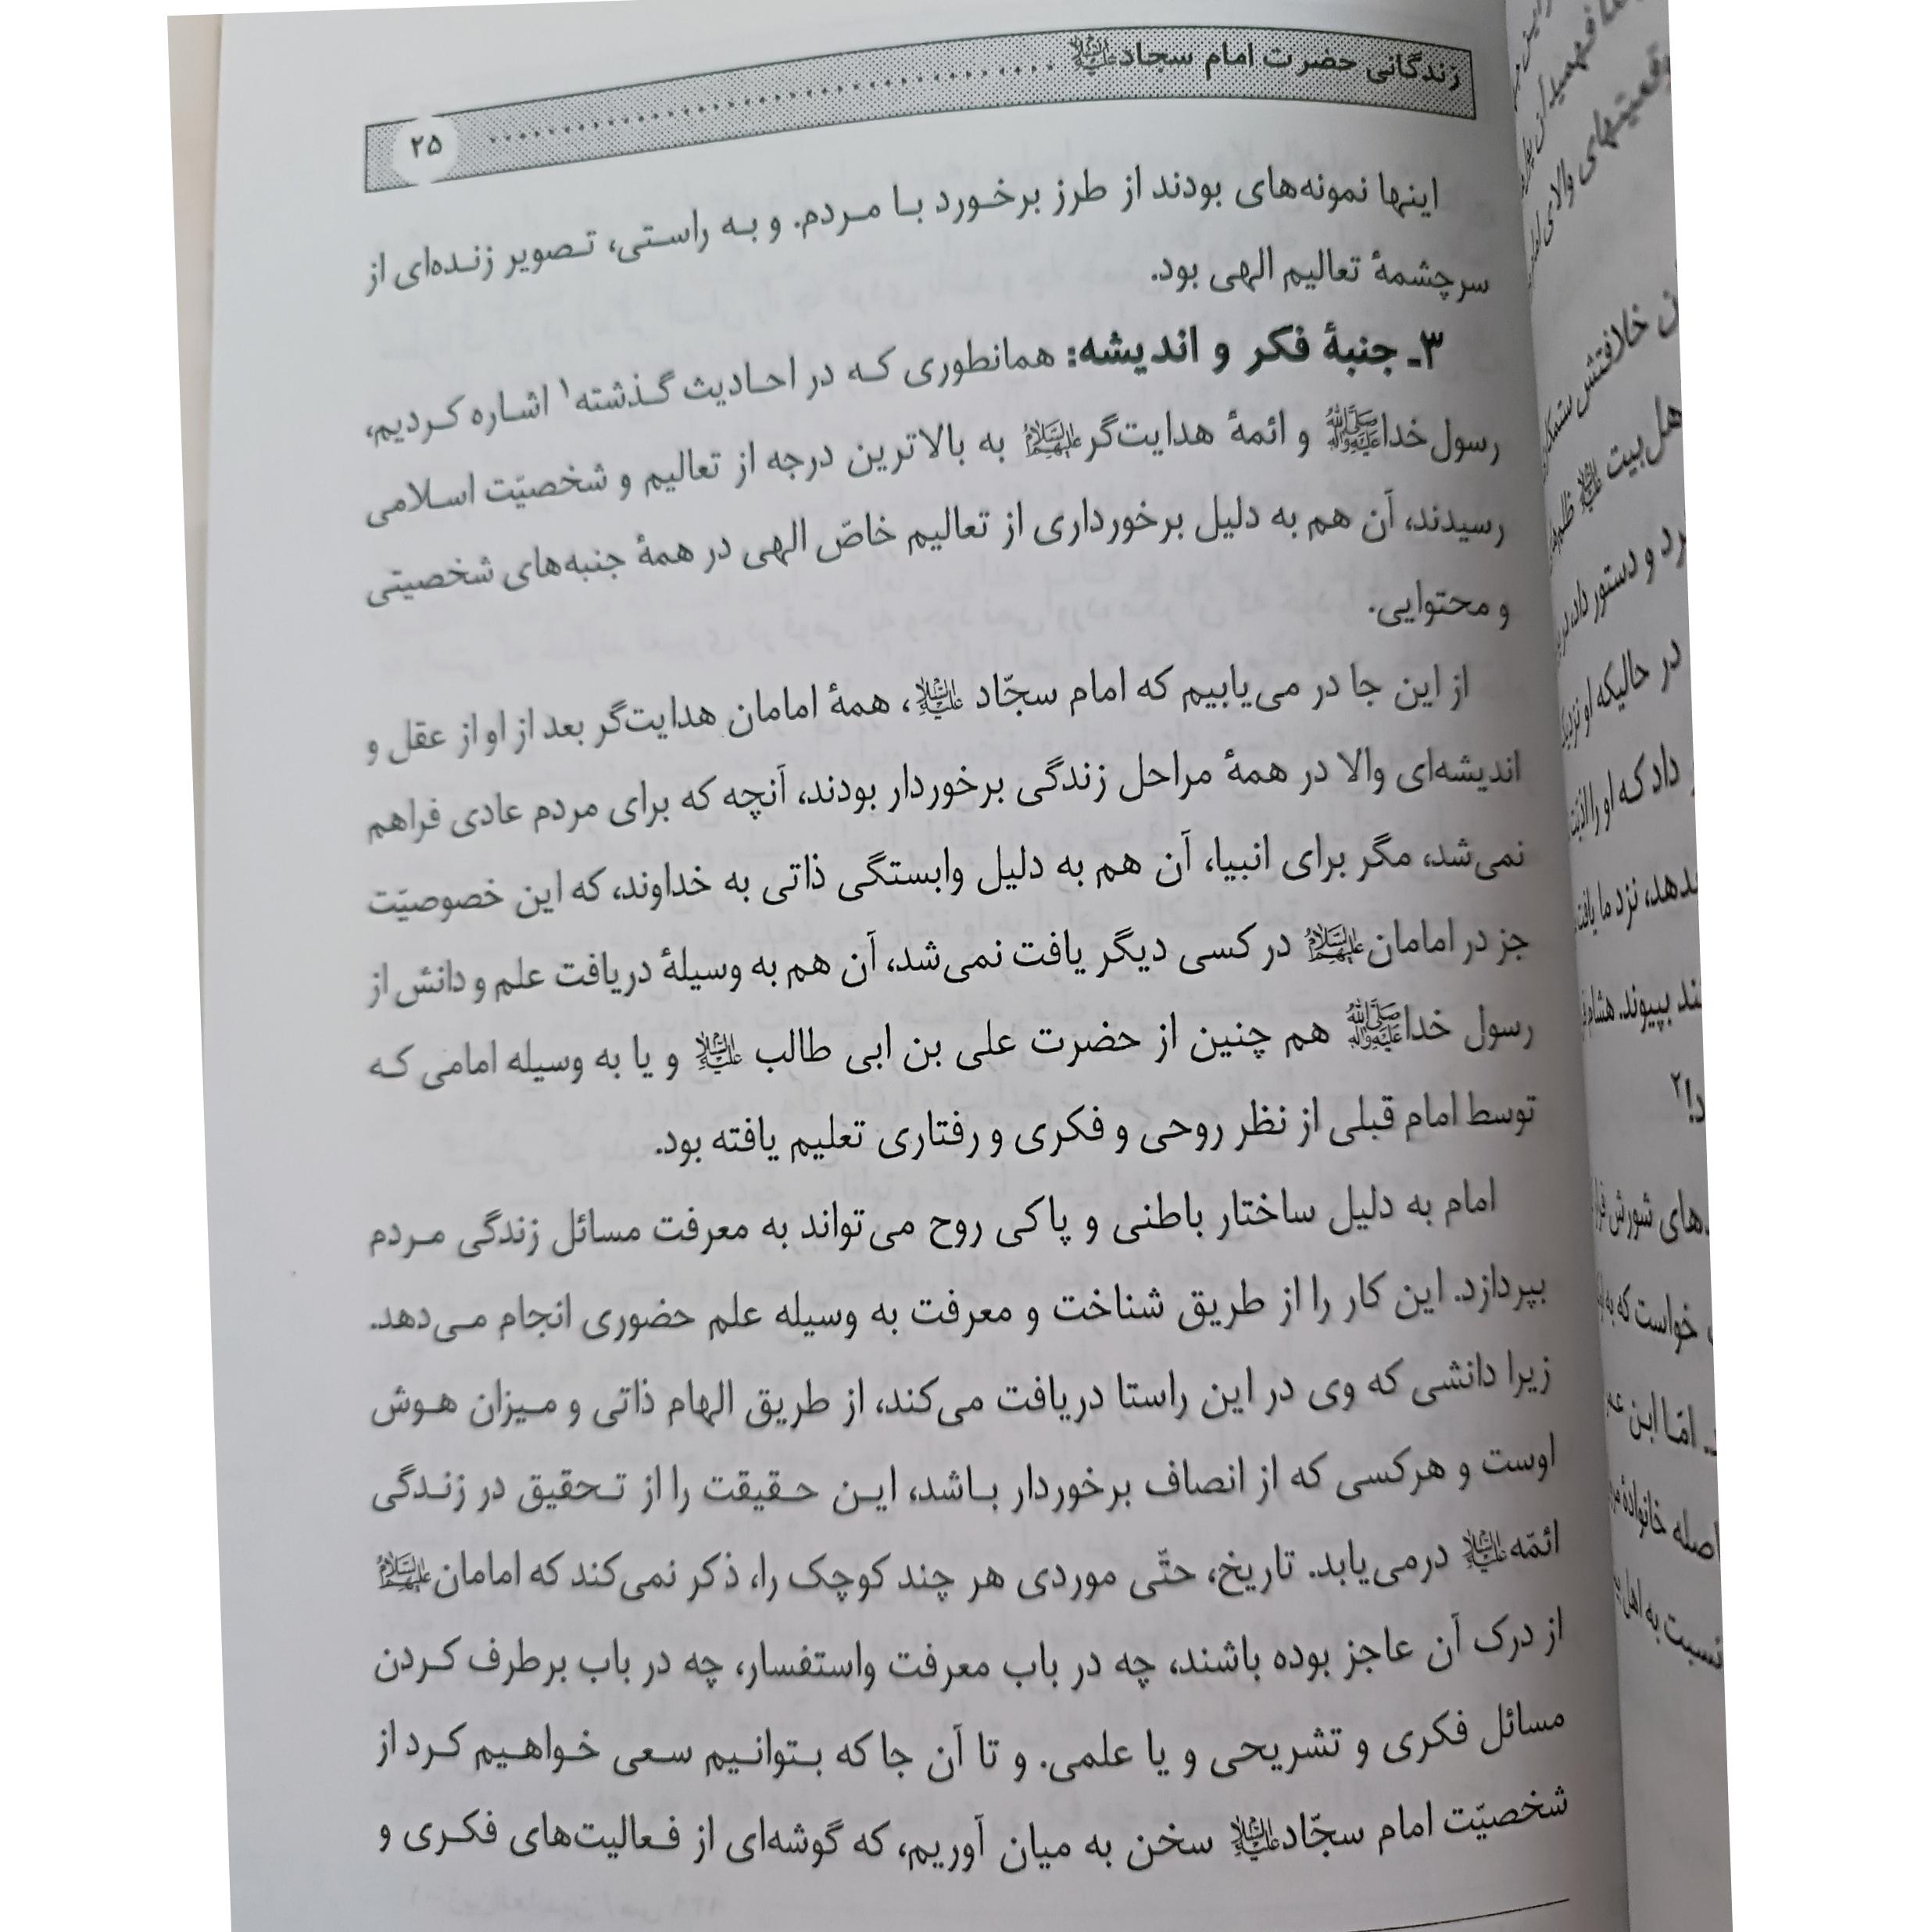 زندگانی حضرت امام سجاد علیه‌السلام ........................................ ۲۵
اینها نمونه‌های بودند از طرز برخورد با مردم. و به راستی، تصویر زنده‌ای از
سرچشمهٔ تعالیم الهی بود.
۳ـ جنبهٔ فکر و اندیشه: همانطوری که در احادیث گذشته۱ اشاره کردیم،
رسول‌خداﷺ و ائمهٔ هدایت‌گر علیهم‌السلام به بالاترین درجه از تعالیم و شخصیّت اسلامی
رسیدند، آن هم به دلیل برخورداری از تعالیم خاصّ الهی در همهٔ جنبه‌های شخصیتی
و محتوایی.
از این جا در می‌یابیم که امام سجّاد علیه‌السلام، همهٔ امامان هدایت‌گر بعد از او از عقل و
اندیشه‌ای والا در همهٔ مراحل زندگی برخوردار بودند، آنچه که برای مردم عادی فراهم
نمی‌شد، مگر برای انبیا، آن هم به دلیل وابستگی ذاتی به خداوند، که این خصوصیّت
جز در امامان علیهم‌السلام در کسی دیگر یافت نمی‌شد، آن هم به وسیلهٔ دریافت علم و دانش از
رسول خداﷺ هم چنین از حضرت علی بن ابی طالب علیه‌السلام و یا به وسیله امامی که
توسط امام قبلی از نظر روحی و فکری و رفتاری تعلیم یافته بود.
امام به دلیل ساختار باطنی و پاکی روح می‌تواند به معرفت مسائل زندگی مردم
بپردازد. این کار را از طریق شناخت و معرفت به وسیله علم حضوری انجام می‌دهد.
زیرا دانشی که وی در این راستا دریافت می‌کند، از طریق الهام ذاتی و میزان هوش
اوست و هرکسی که از انصاف برخوردار باشد، این حقیقت را از تحقیق در زندگی
ائمّه علیه‌السلام درمی‌یابد. تاریخ، حتّی موردی هر چند کوچک را، ذکر نمی‌کند که امامان علیهم‌السلام
از درک آن عاجز بوده باشند، چه در باب معرفت واستفسار، چه در باب برطرف کردن
مسائل فکری و تشریحی و یا علمی. و تا آن جا که بتوانیم سعی خواهیم کرد از
شخصیّت امام سجّاد علیه‌السلام سخن به میان آوریم، که گوشه‌ای از فعالیت‌های فکری و
خلافتش
هل‌بیت علیه‌السلام
رد و دستور داد،
در حالیکه او
داد که او را
بدهد، نزد ما
ند بپیوند. هشام
د!۲
خواست که به
امّا ابن
خانوادهٔ
نسبت به اهل